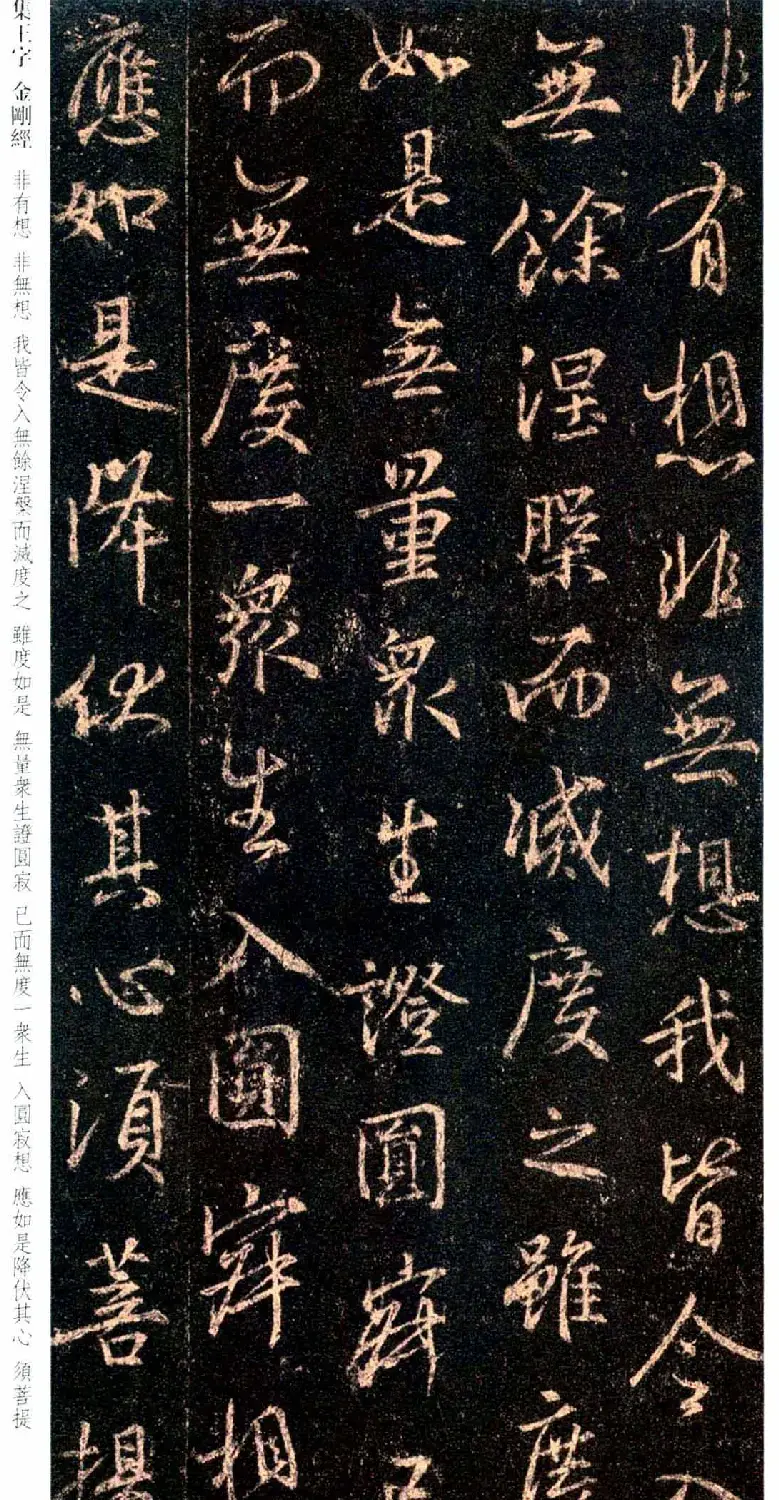 非有想非無想我皆令入
無餘涅槃而滅度之雖度
如是無量衆生證圓寂已
而無度一衆生入圓寂想
應如是降伏其心須菩提
集王字 金剛經 非有想 非無想 我皆令入無餘涅槃而滅度之 雖度如是 無量衆生證圓寂 已而無度一衆生 入圓寂想 應如是降伏其心 須菩提